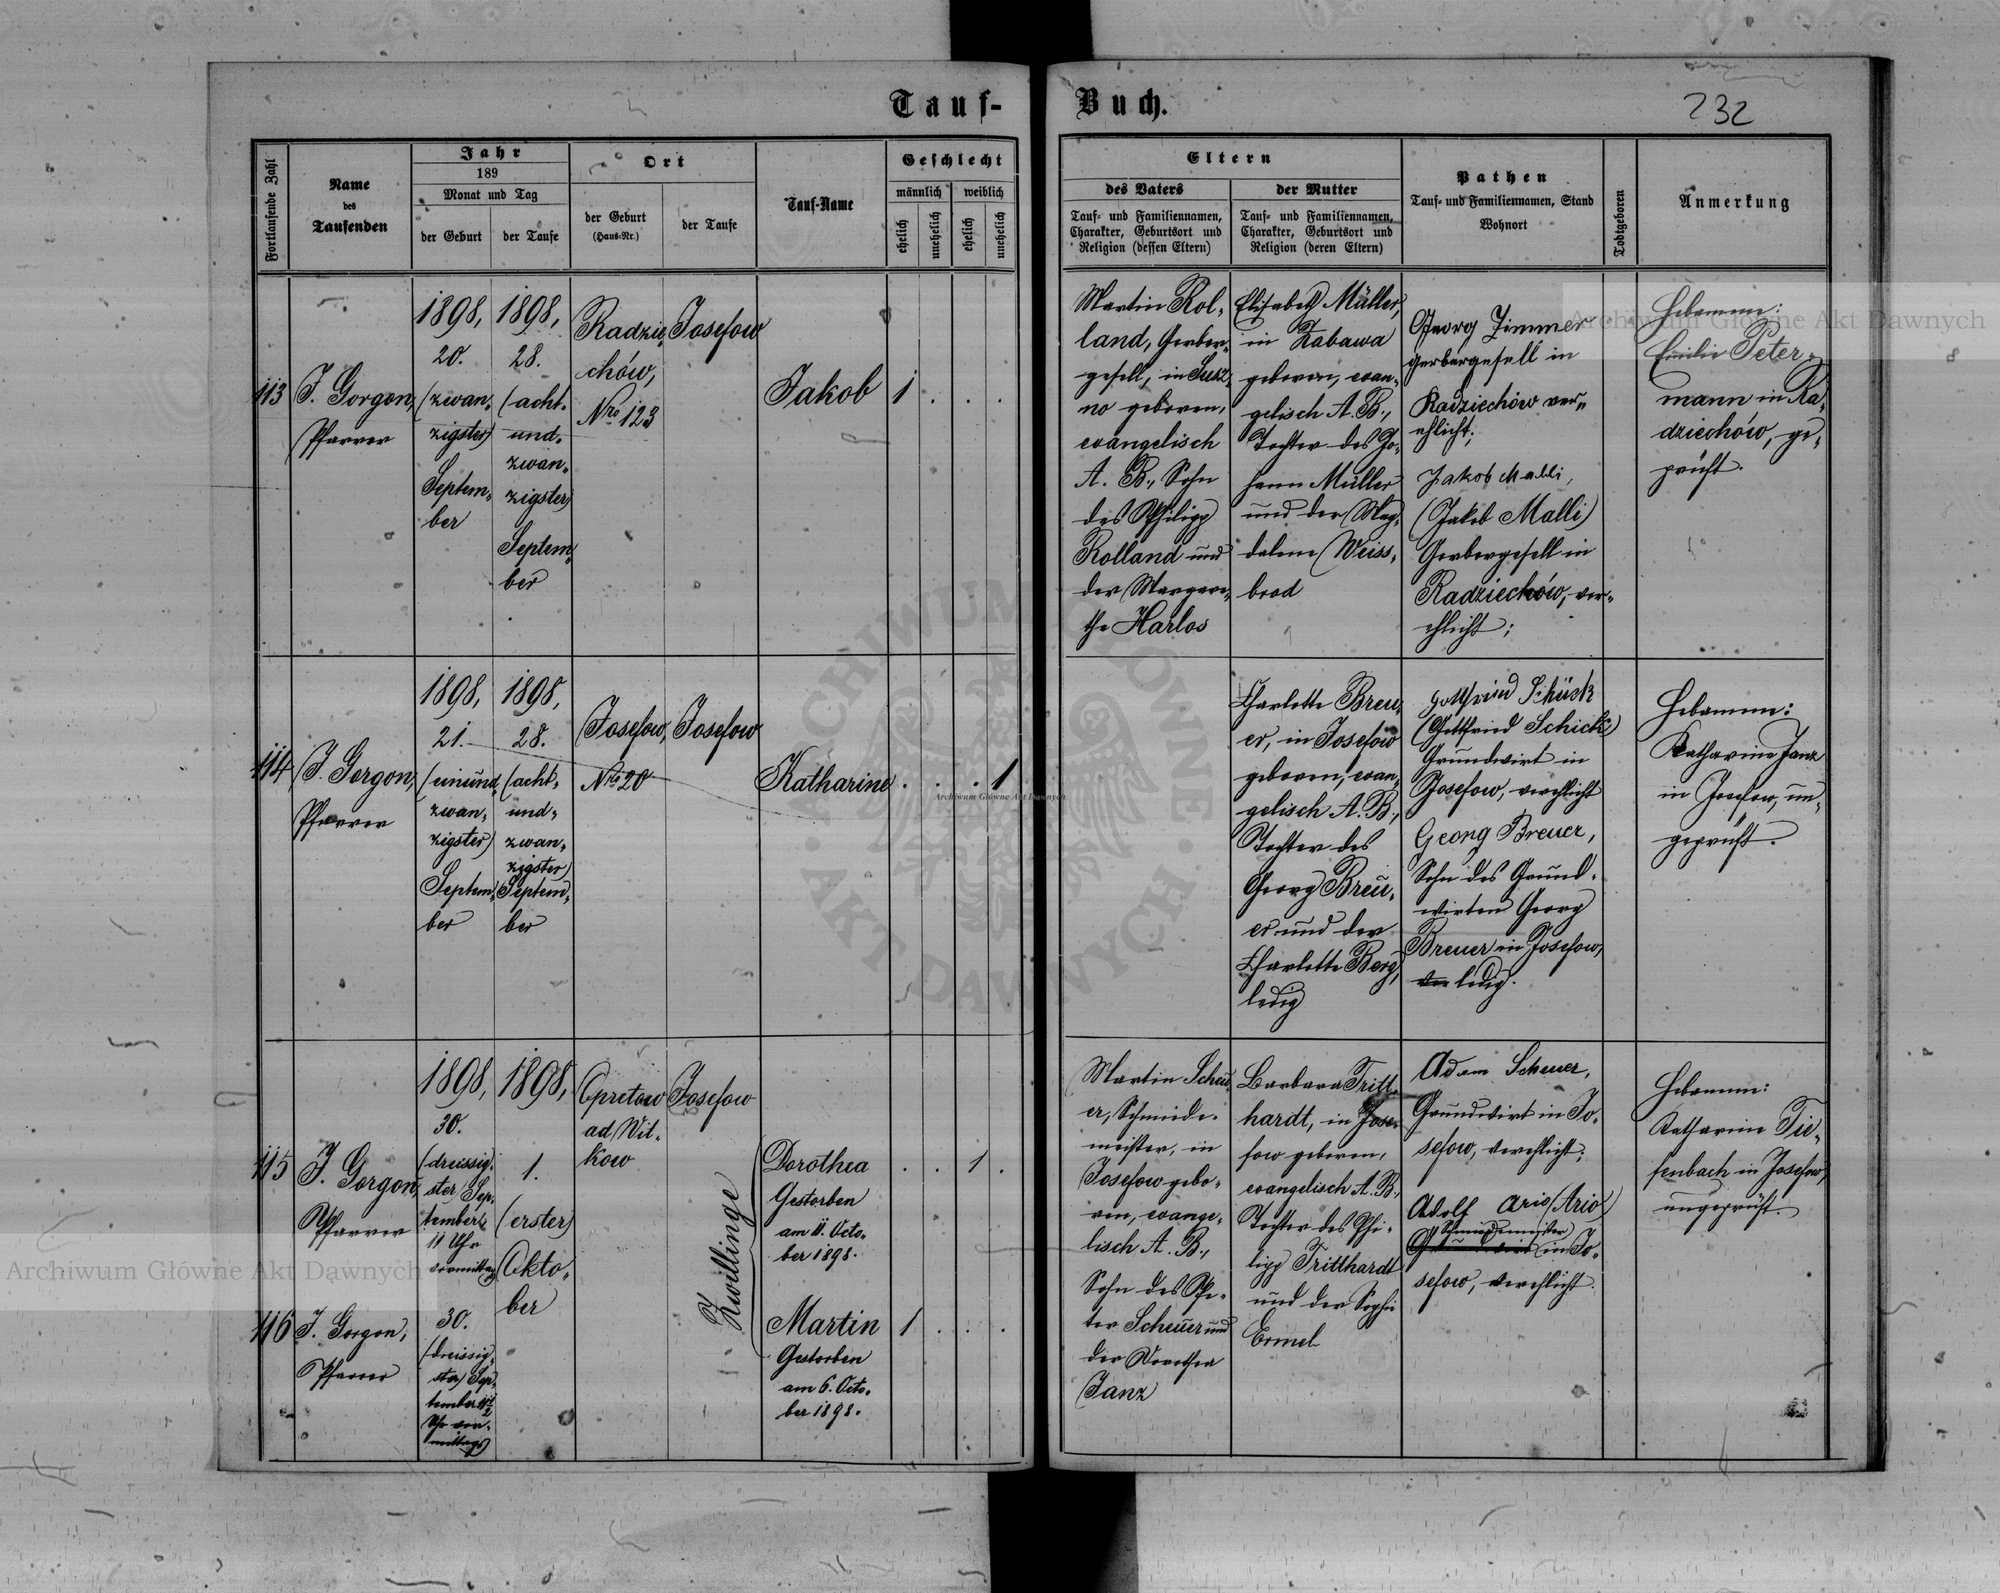 Tauf-
Buch.
232
Fortlaufende Zahl
Name
des
Taufenden
Jahr
189
Monat und Tag
der Geburt
der Taufe
Ort
der Geburt
(Haus-Nr.)
der Taufe
Tauf-Name
Geschlecht
männlich
weiblich
ehelich
unehelich
ehelich
unehelich
Eltern
des Vaters
Tauf- und Familiennamen,
Charakter, Geburtsort und
Religion (dessen Eltern)
der Mutter
Tauf- und Familiennamen,
Charakter, Geburtsort und
Religion (deren Eltern)
Pathen
Tauf- und Familiennamen, Stand
Wohnort
Todtgeboren
Anmerkung
113
J. Gorgon,
Pfarrer
1898,
20.
(zwan-
zigster)
Septem-
ber
1898,
28.
(acht-
und-
zwan-
zigster)
Septem-
ber
Radzie-
chów,
Nro 123
Josefow
Jakob
1 . . .
Martin Rol-
land, Gerber-
gesell, in Susz-
no geboren,
evangelisch
A. B., Sohn
des Philipp
Rolland und
der Margare-
the Harlos
Elisabeth Müller,
in Zabawa
geboren, evan-
gelisch A. B.,
Tochter des Jo-
hann Müller
und der Mag-
dalene Weiss-
brod
Georg Zimmer
Gerbergesell in
Radziechów ver-
ehlicht;
Jakob Malli,
(Jakob Malli)
Gerbergesell in
Radziechów, ver-
ehlicht;
Hebamme:
Emilie Peter-
mann in Ra-
dziechów, ge-
prüft.
114
J. Gorgon,
Pfarrer
1898,
21.
(einund-
zwan-
zigster)
Septem-
ber
1898,
28.
(acht-
und-
zwan-
zigster)
Septem-
ber
Josefow,
Nro 20
Josefow
Katharine
. . . 1
Charlotte Breu-
er, in Josefow
geboren, evan-
gelisch A. B.,
Tochter des
Georg Breu-
er und der
Charlotte Berg,
ledig
Gottfried Schück
(Gottfried Schick)
Grundwirt in
Josefow, verehlicht
Georg Breuer,
Sohn des Grund-
wirten Georg
Breuer in Josefow,
ver ledig.
Hebamme:
Katharine Janz
in Josefow, un-
geprüft.
115
J. Gorgon,
Pfarrer
1898,
30.
(dreissig-
ster) Sep-
tember
11 Uhr
vormittag
1898,
1.
(erster)
Okto-
ber
Opretow
ad Wit-
kow
Josefow
Zwillinge
Dorothea
Gestorben
am 11. Octo-
ber 1898.
. . 1 .
Martin Scheu-
er, Schmiede-
meister, in
Josefow gebo-
ren, evange-
lisch A. B.,
Sohn des Pe-
ter Scheuer und
der Dorothea
Janz
Barbara Tritt-
hardt, in Jose-
fow geboren,
evangelisch A. B.,
Tochter des Phi-
lipp Tritthardt
und der Sophie
Ermel
Adam Scheuer,
Grundwirt in Jo-
sefow, verehlicht;
Adolf Ario (Ario)
Schmiedemeister
Grundwirt in Jo-
sefow, verehlicht.
Hebamme:
Katharine Tie-
fenbach in Josefow,
ungeprüft.
116
J. Gorgon,
Pfarrer
30.
(dreissig-
ster) Sep-
tember 11 1/2
Uhr vor-
mittags)
Martin
Gestorben
am 6. Octo-
ber 1898.
1 . . .
Archiwum Główne Akt Dawnych
Archiwum Główne Akt Dawnych
Archiwum Główne Akt Dawnych
ARCHIWUM GŁÓWNE · AKT DAWNYCH ·